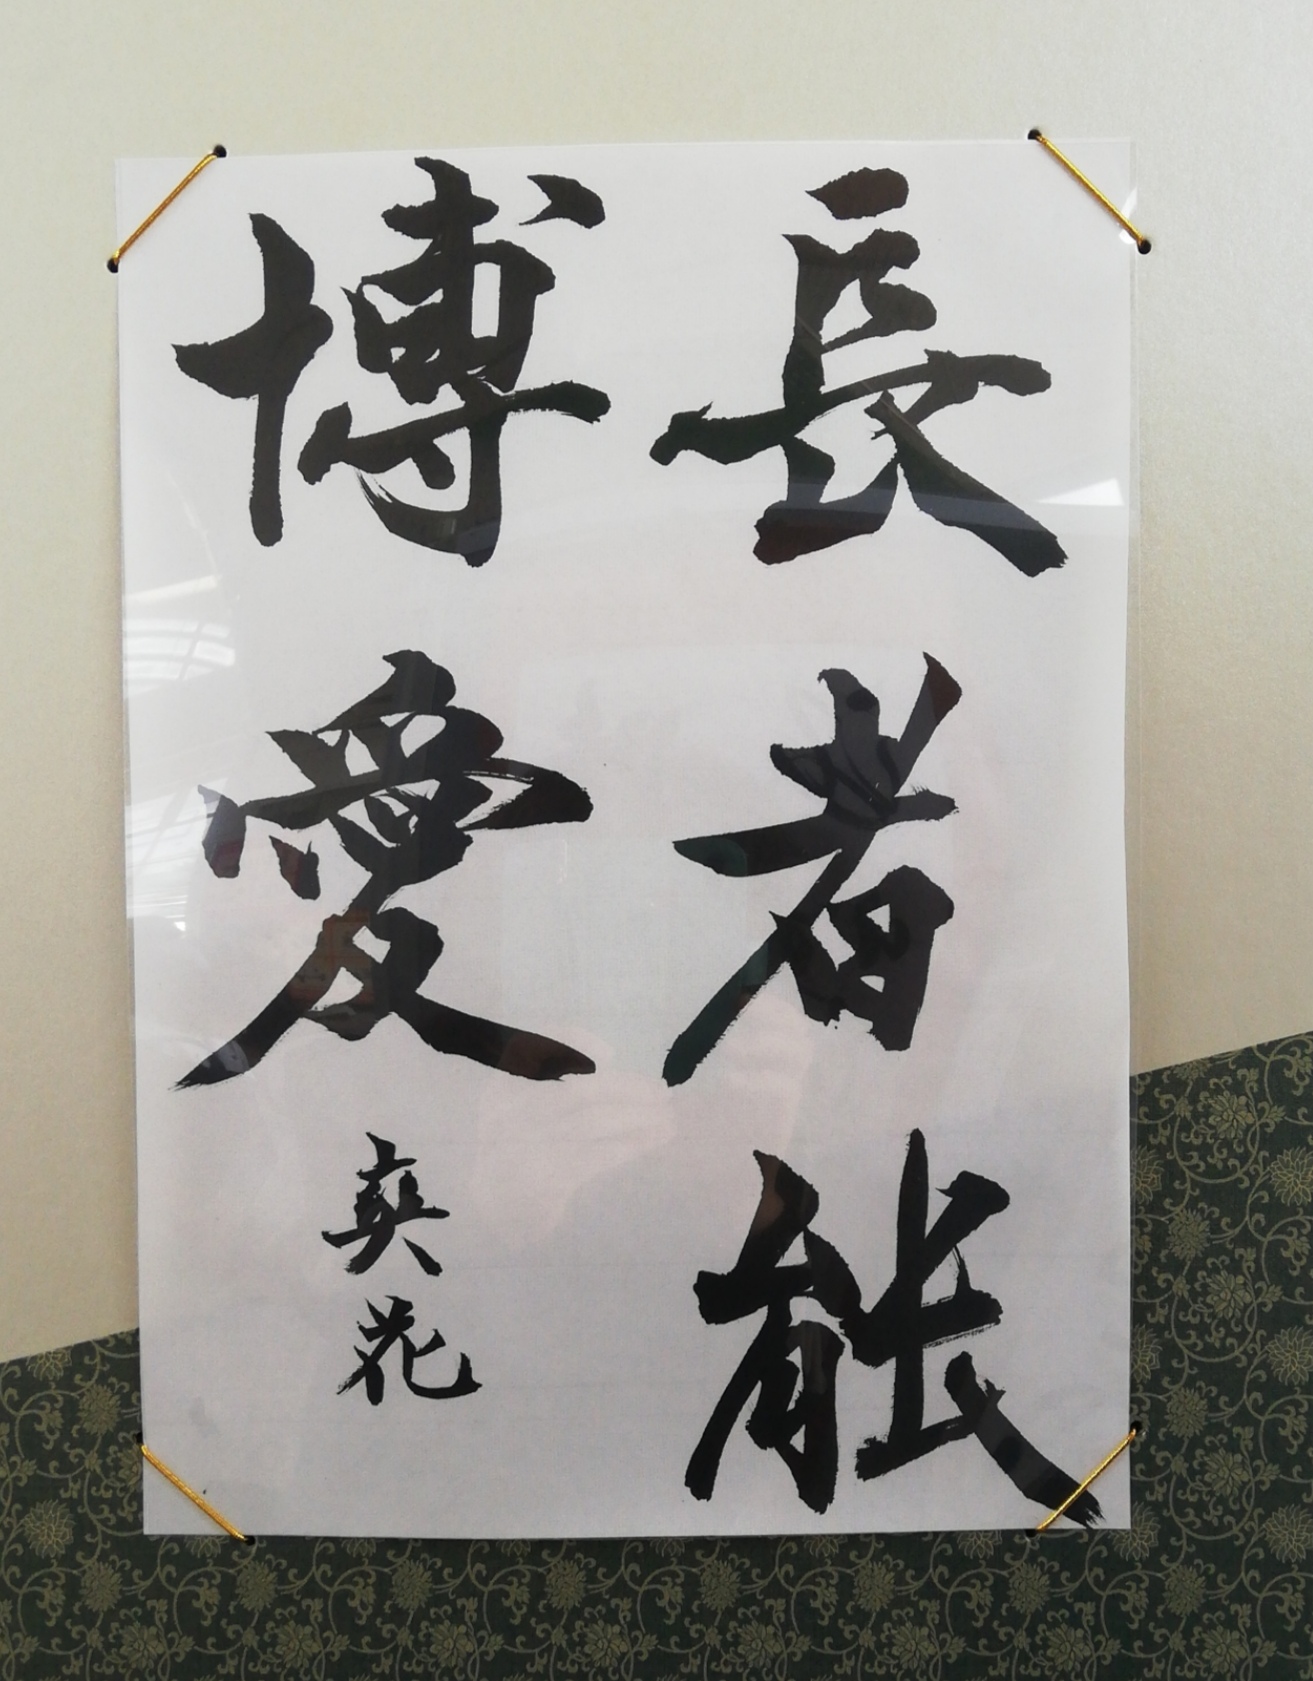 長者能
博愛
爽花